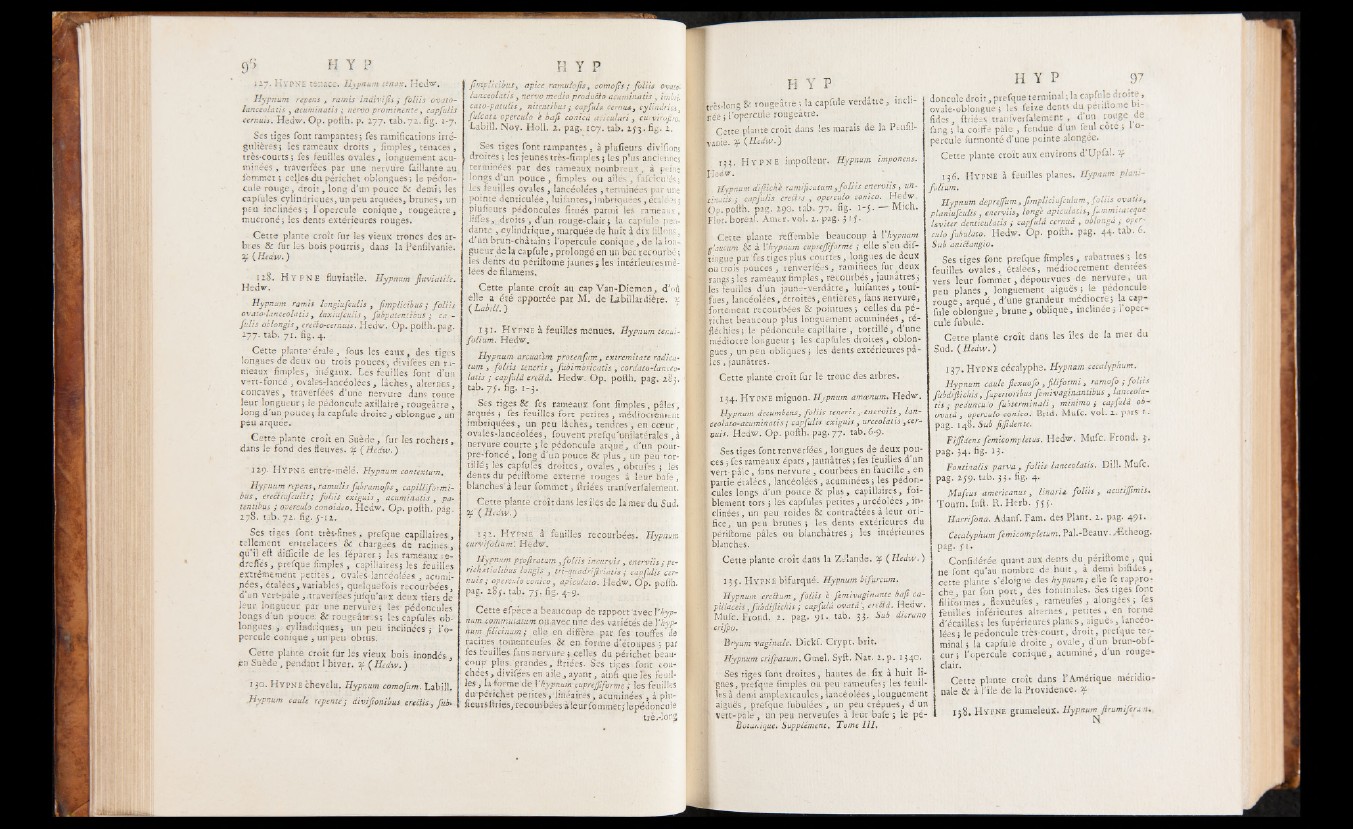 96 H Y P
127. HYPNE tenace. Hypnum tenax. Hedw.
Hypnum repens, ramis indivisis; foliis ovato-
lanceolatis, acuminatis; nervo prominente, capsulis
cernuis. Hedw. Op. posth. p. 277. tab. 72. fig. 1-7.
Ses tiges sont rampantes; ses ramifications irré-
gulières; les rameaux droits, simples, tenaces,
très-courts; ses feuilles ovales, longuement acu-
minées, traversées par une nervure saillante au
sommet; celles du périchet oblongues; le pédon-
cule rouge, droit, long d'un pouce & demi; les
capsules cylindriques, un peu arquées, brunes, un
peu inclinées; l'opercule conique, rougeâtre,
mucroné; les dents extérieures rouges.
Cette plante croît sur les vieux troncs des ar-
bres & sur les bois pourris, dans la Pensilvanie.
♃ (Hedw.)
128. HYPNE fluviatile. Hypnum fluviatile.
Hedw.
Hypnum ramis longiusculis, simplicibus; foliis
ovato-lanceolatis, laxiusculis, subpatentibus; ca-
psulis oblongis, erecto-cernuis. Hedw. Op. posth. pag.
277. tab. 71. fig. 4.
Cette plante étale, sous les eaux, des tiges
longues de deux ou trois pouces, divisées en ra-
meaux simples, inégaux. Les feuilles sont d'un
vert-foncé, ovales-lancéolées, lâches, alternes,
concaves, traversées d'une nervure dans toute
leur longueur; le pédoncule axillaire, rougeâtre,
long d'un pouce; la capsule droite, oblongue, un
peu arquée.
Cette plante croît en Suède, sur les rochers,
dans le fond des fleuves. ♃ (Hedw.)
129. HYPNE entre-mêlé. Hypnum contextum.
Hypnum repens, ramulis subramosis, capilliformi-
bus, erectiusculis; foliis exiguis, acuminatis, pa-
tentibus; operculo conoideo. Hedw. Op. posth. pag.
278. tab. 72. fig. 5-12.
Ses tiges sont très-fines, presque capillaires,
tellement entrelacées & chargées de racines,
qu'il est difficile de les séparer; les rameaux re-
dressés, presque simples, capillaires; les feuilles
extrêmement petites, ovales-lancéolées, acumi-
nées, étalées, variables, quelquefois recourbées,
d'un vert-pâle, traversées jusqu'aux deux tiers de
leur longueur par une nervure; les pédoncules
longs d'un pouce & rougeâtres; les capsules ob-
longues, cylindriques, un peu inclinées; l'o-
percule conique, un peu obtus.
Cette plante croît sur les vieux bois inondés,
en Suède, pendant l'hiver. ♃ (Hedw.)
130. HYPNE chevelu. Hypnum comosum. Labill.
Hypnum caule repente; divisionibus erectis, sub-
H Y P
simplicibus, apice ramulosis, comosis; foliis ovato-
lanceolatis, nervo medio producto acuminatis, imbri-
cato-patulis, nitentibus; capsula cernua, cylindrica,
sulcata operculo è basi conica aciculari, curvirostro.
Labill. Nov. Holl. 2. pag. 107. tab. 253. fig. 2.
Ses tiges sont rampantes, à plusieurs divisions
droites; les jeunes très-simples; les plus anciennes
terminées par des rameaux nombreux, à peine
longs d'un pouce, simples ou ailés, fasciculés;
les feuilles ovales, lancéolées, terminées par une
pointe denticulée, luisantes, imbriquées, étalées;
plusieurs pédoncules situés parmi les rameaux,
lisses, droits, d'un rouge-clair; la capsule pen-
dante, cylindrique, marquée de huit à dix sillons,
d'un brun-châtain; l'opercule conique, de la lon-
gueur de la capsule, prolongé en un bec recourbé;
les dents du péristome jaunes; les intérieures mê-
lées de filamens.
Cette plante croît au cap Van-Diemen, d'où
elle a été apportée par M. de Labillardière. ♃
(Labill.)
131. HYPNE à feuilles menues. Hypnum tenui-
folium. Hedw.
Hypnum arcuatim protensum, extremitate radica-
tum, foliis teneris, subimbricatis, cordato-lanceo-
latis; capsulâ erectâ. Hedw. Op. posth. pag. 283.
tab. 75. fig. 1-3.
Ses tiges & ses rameaux sont simples, pâles,
arqués; ses feuilles fort petites, médiocrement
imbriquées, un peu lâches, tendres, en cœur,
ovales-lancéolées, souvent presqu'unilatérales, à
nervure courte; le pédoncule arqué, d'un pour-
pre-foncé, long d'un pouce & plus, un peu tor-
tillé; les capsules droites, ovales, obtuses; les
dents du péristome externe rouges à leur base,
blanches à leur sommet, striées transversalement.
Cette plante croît dans les îles de la mer du Sud.
♃ (Hedw.)
132. HYPNE à feuilles recourbées. Hypnum
curvifolium. Hedw.
Hypnum prostratum, foliis incurvis, enerviis; pe-
richætialibus longis, tri-quadristriatis; capsulis cer-
nuis; operculo conico, apiculato. Hedw. Op. posth.
pag. 285. tab. 75. fig. 4-9.
Cette espèce a beaucoup de rapport avec l'hyp-
num commutatum ou avec une des variétés de l'hyp-
num filicinum; elle en diffère par ses touffes de
racines tomenteuses & en forme d'étoupes; par
ses feuilles sans nervure; celles du périchet beau-
coup plus grandes, striées. Ses tiges sont cou-
chées, divisées en aile, ayant, ainsi que les feuil-
les, la forme de l'hypnum cupressiforme; les feuilles
du périchet petites, linéaires, acuminées, à plu-
sieurs stries, recourbées à leur sommet; le pédoncule
très-long
H Y P
très-long & rougeâtre; la capsule verdâtre, incli-
née; l'opercule rougeâtre.
Cette plante croît dans les marais de la Pensil-
vanie. ♃ (Hedw.)
133. HYPNE imposteur. Hypnum imponens.
Hedw.
Hypnum distichè ramificatum, foliis enerviis, un-
cinatis; capsulis erectis, operculo conico. Hedw.
Op. posth. pag. 290. tab. 77. fig. 1-5. — Mich.
Flor. boreal. Amer. vol. 2. pag. 315.
Cette plante ressemble beaucoup à l'hypnum
& à l'hypnum cupressiforme; elle s'en dis-
tingue par ses tiges plus courtes, longues de deux
ou trois pouces, renversées, ramifiées sur deux
rangs; les rameaux simples, recourbés, jaunâtres;
les feuilles d'un jaune-verdâtre, luisantes, touf-
fues, lancéolées, étroites, entières, sans nervure,
fortement recourbées & pointues; celles du pé-
richet beaucoup plus longuement acuminées, ré-
fléchies; le pédoncule capillaire, tortillé, d'une
médiocre longueur; les capsules droites, oblon-
gues, un peu obliques; les dents extérieures pâ-
les, jaunâtres.
Cette plante croît sur le tronc des arbres.
134. HYPNE mignon. Hypnum amœnum. Hedw.
Hypnum decumbens, foliis teneris, enerviis, lan-
ceolato-acuminatis; capsulis exiguis, urceolatis, cer-
nuis. Hedw. Op. posth. pag. 77. tab. 6-9.
Ses tiges sont renversées, longues de deux pou-
ces; ses rameaux épars, jaunâtres; ses feuilles d'un
vert-pâle, sans nervure, courbées en faucille, en
partie étalées, lancéolées, acuminées; les pédon-
cules longs d'un pouce & plus, capillaires, foi-
blement tors; les capsules petites, urcéolées, in-
clinées, un peu roides & contractées à leur ori-
fice, un peu brunes; les dents extérieures du
péristome pâles ou blanchâtres; les intérieures
blanches.
Cette plante croît dans la Zélande. ♃ (Hedw.)
135. HYPNE bifurqué. Hypnum bifurcum.
Hypnum erectum, foliis è semivaginante basi ca-
pillaceis, subdistichis; capsulâ ovatâ, erectâ. Hedw.
Musc. Frond. 2. pag. 91. tab. 33. Sub dicrano
crispo.
Bryum vaginale. Dickf. Crypt. brit.
Hypnum crispatum. Gmel. Syst. Nat. 2. p. 1340.
Ses tiges sont droites, hautes de six à huit li-
gnes, presque simples ou peu rameuses; les feuil-
les à demi amplexicaules, lancéolées, longuement
aiguës, presque subulées, un peu crépues, d'un
vert-pâle, un peu nerveuses à leur base; le pé-
Botanique. Supplément. Tome III.
H Y P 97
doncule droit, presque terminal; la capsule droite,
ovale-oblongue; les seize dents du péristome bi-
fides, striées transversalement, d'un rouge de
sang; la coiffe pâle, fendue d'un seul côté; l'o-
percule surmonté d'une pointe alongée.
Cette plante croît aux environs d'Upsal. ♃
136. HYPNE à feuilles planes. Hypnum plani-
folium.
Hypnum depressum, simpliciusculum, foliis ovatis,
planiusculis, enerviis, longè apiculatis, summitateque
læviter denticulatis; capsulâ cernuâ, oblongâ; oper-
culo subulato. Hedw. Op. posth. pag. 44. tab. 6.
Sub anictangio.
Ses tiges sont presque simples, rabattues; les
feuilles ovales, étalées, médiocrement dentées
vers leur sommet, dépourvues de nervure, un
peu planes, longuement aiguës; le pédoncule
rouge, arqué, d'une grandeur médiocre; la cap-
sule oblongue, brune, oblique, inclinée; l'oper-
cule subulé.
Cette plante croît dans les îles de la mer du
Sud. (Hedw.)
137. HYPNE cécalyphe. Hypnum cecalyphum.
Hypnum caule flexuoso, filiformi, ramoso; foliis
subdistichis, superioribus semivaginantibus, lanceola-
tis; pedunculo subterminali, minimo; capsulâ ob-
ovatâ, operculo conico. Brid. Musc. vol. 2. pars 1.
pag. 148. Sub fissidente.
Fissidens semicompletus. Hedw. Musc. Frond. 3.
pag. 34. fig. 13.
Fontinalis parva, foliis lanceolatis. Dill. Musc.
pag. 259. tab. 33. fig. 4.
Muscus americanus, linariæ foliis, acutissimis.
Tourn. Inst. R. Herb. 555.
Harrisona. Adanf. Fam. des Plant. 2. pag. 491.
Cecalyphum semicompletum. Pal.-Beauv. Ætheog.
pag. 51.
Considérée quant aux dents du péristome, qui
ne sont qu'au nombre de huit, à demi bifides,
cette plante s'éloigne des hypnum; elle se rappro-
che, par son port, des fontinales. Ses tiges sont
filiformes, flexueuses, rameuses, alongées; ses
feuilles inférieures alternes, petites, en forme
d'écailles; les supérieures planes, aiguës, lancéo-
lées; le pédoncule très-court, droit, presque ter-
minal; la capsule droite, ovale, d'un brun-obs-
cur; l'opercule conique, acuminé, d'un rouge-
clair.
Cette plante croît dans l'Amérique méridio-
nale & à l'île de la Providence. ♃
138. HYPNE grumeleux. Hypnum
N